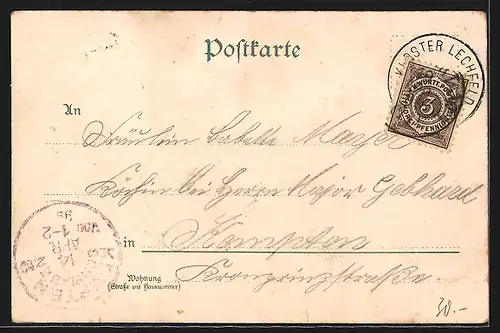 Postkarte
KLOSTER LECHFELD
3
PFENNIG
An
Fräulein Babette Mayer
Köchin bei Herrn Major Gebhard
in Kempten
Wohnung
(Straße und Hausnummer)
Kronprinzstraße.
KEMPTEN
14
APR
VOR 1-2
98
30.-